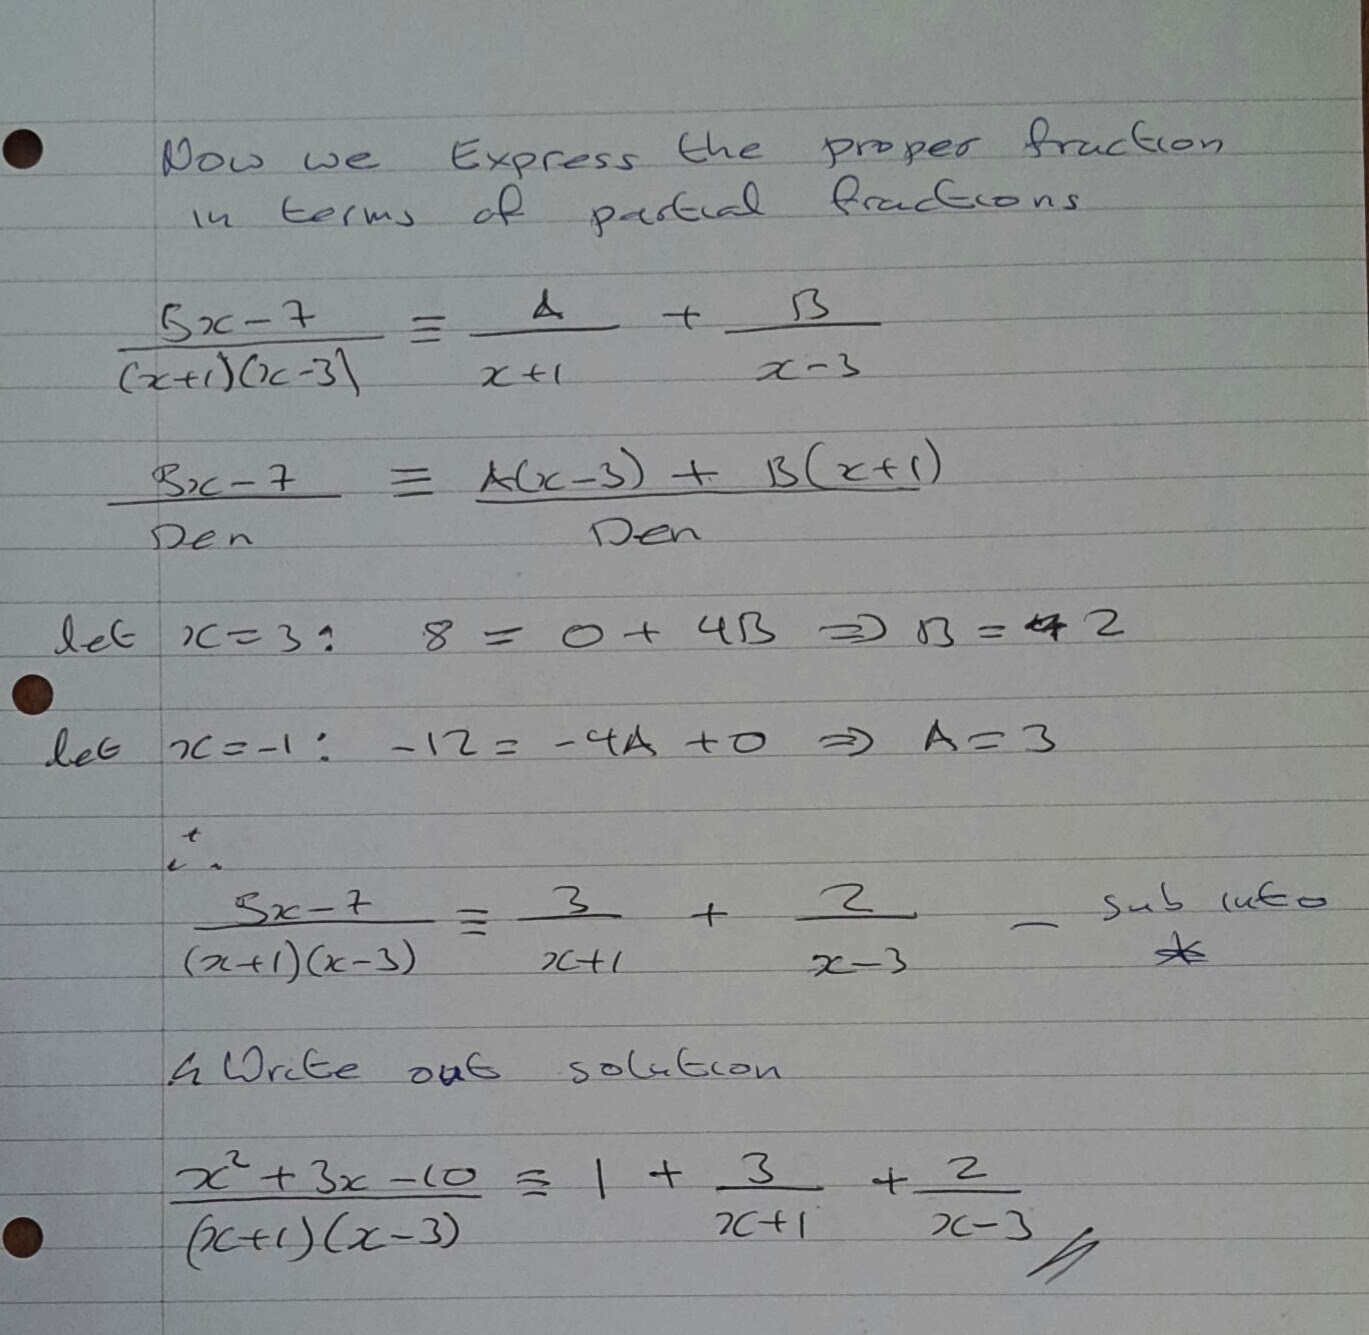 Now we Express the proper fraction
in terms of partial fractions
5x-7 / (x+1)(x-3) ≡ A / x+1 + B / x-3
5x-7 / Den ≡ A(x-3) + B(x+1) / Den
let x=3: 8 = 0 + 4B ⇒ B = 2
let x=-1: -12 = -4A +0 ⇒ A=3
∴
5x-7 / (x+1)(x-3) ≡ 3 / x+1 + 2 / x-3 – sub into *
Write out solution
x²+3x-10 / (x+1)(x-3) ≡ 1 + 3 / x+1 + 2 / x-3 //